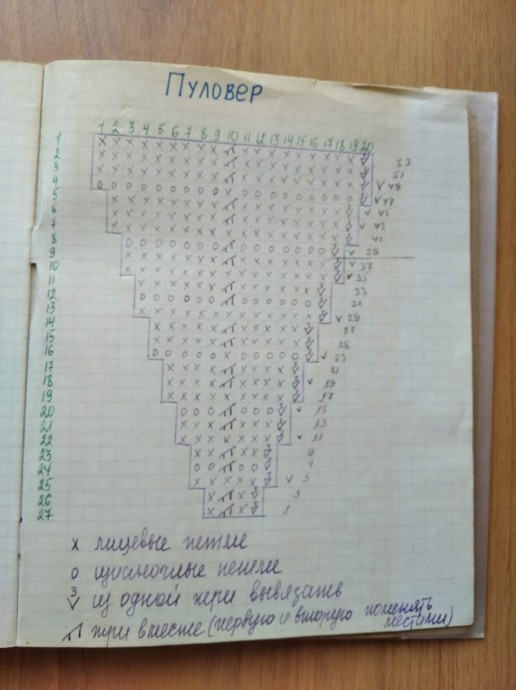 Пуловер
1 2 3 4 5 6 7 8 9 10 11 12 13 14 15 16 17 18 19 20
1
2
3
4
5
6
7
8
9
10
11
12
13
14
15
16
17
18
19
20
21
22
23
24
25
26
27
53
51
49
47
45
43
41
39
37
35
33
31
29
27
25
23
21
19
17
15
13
11
9
7
5
3
1
x лицевые петли
о изнаночные петли
3 из одной три вывязать
три вместе (первую и вторую поменять местами)